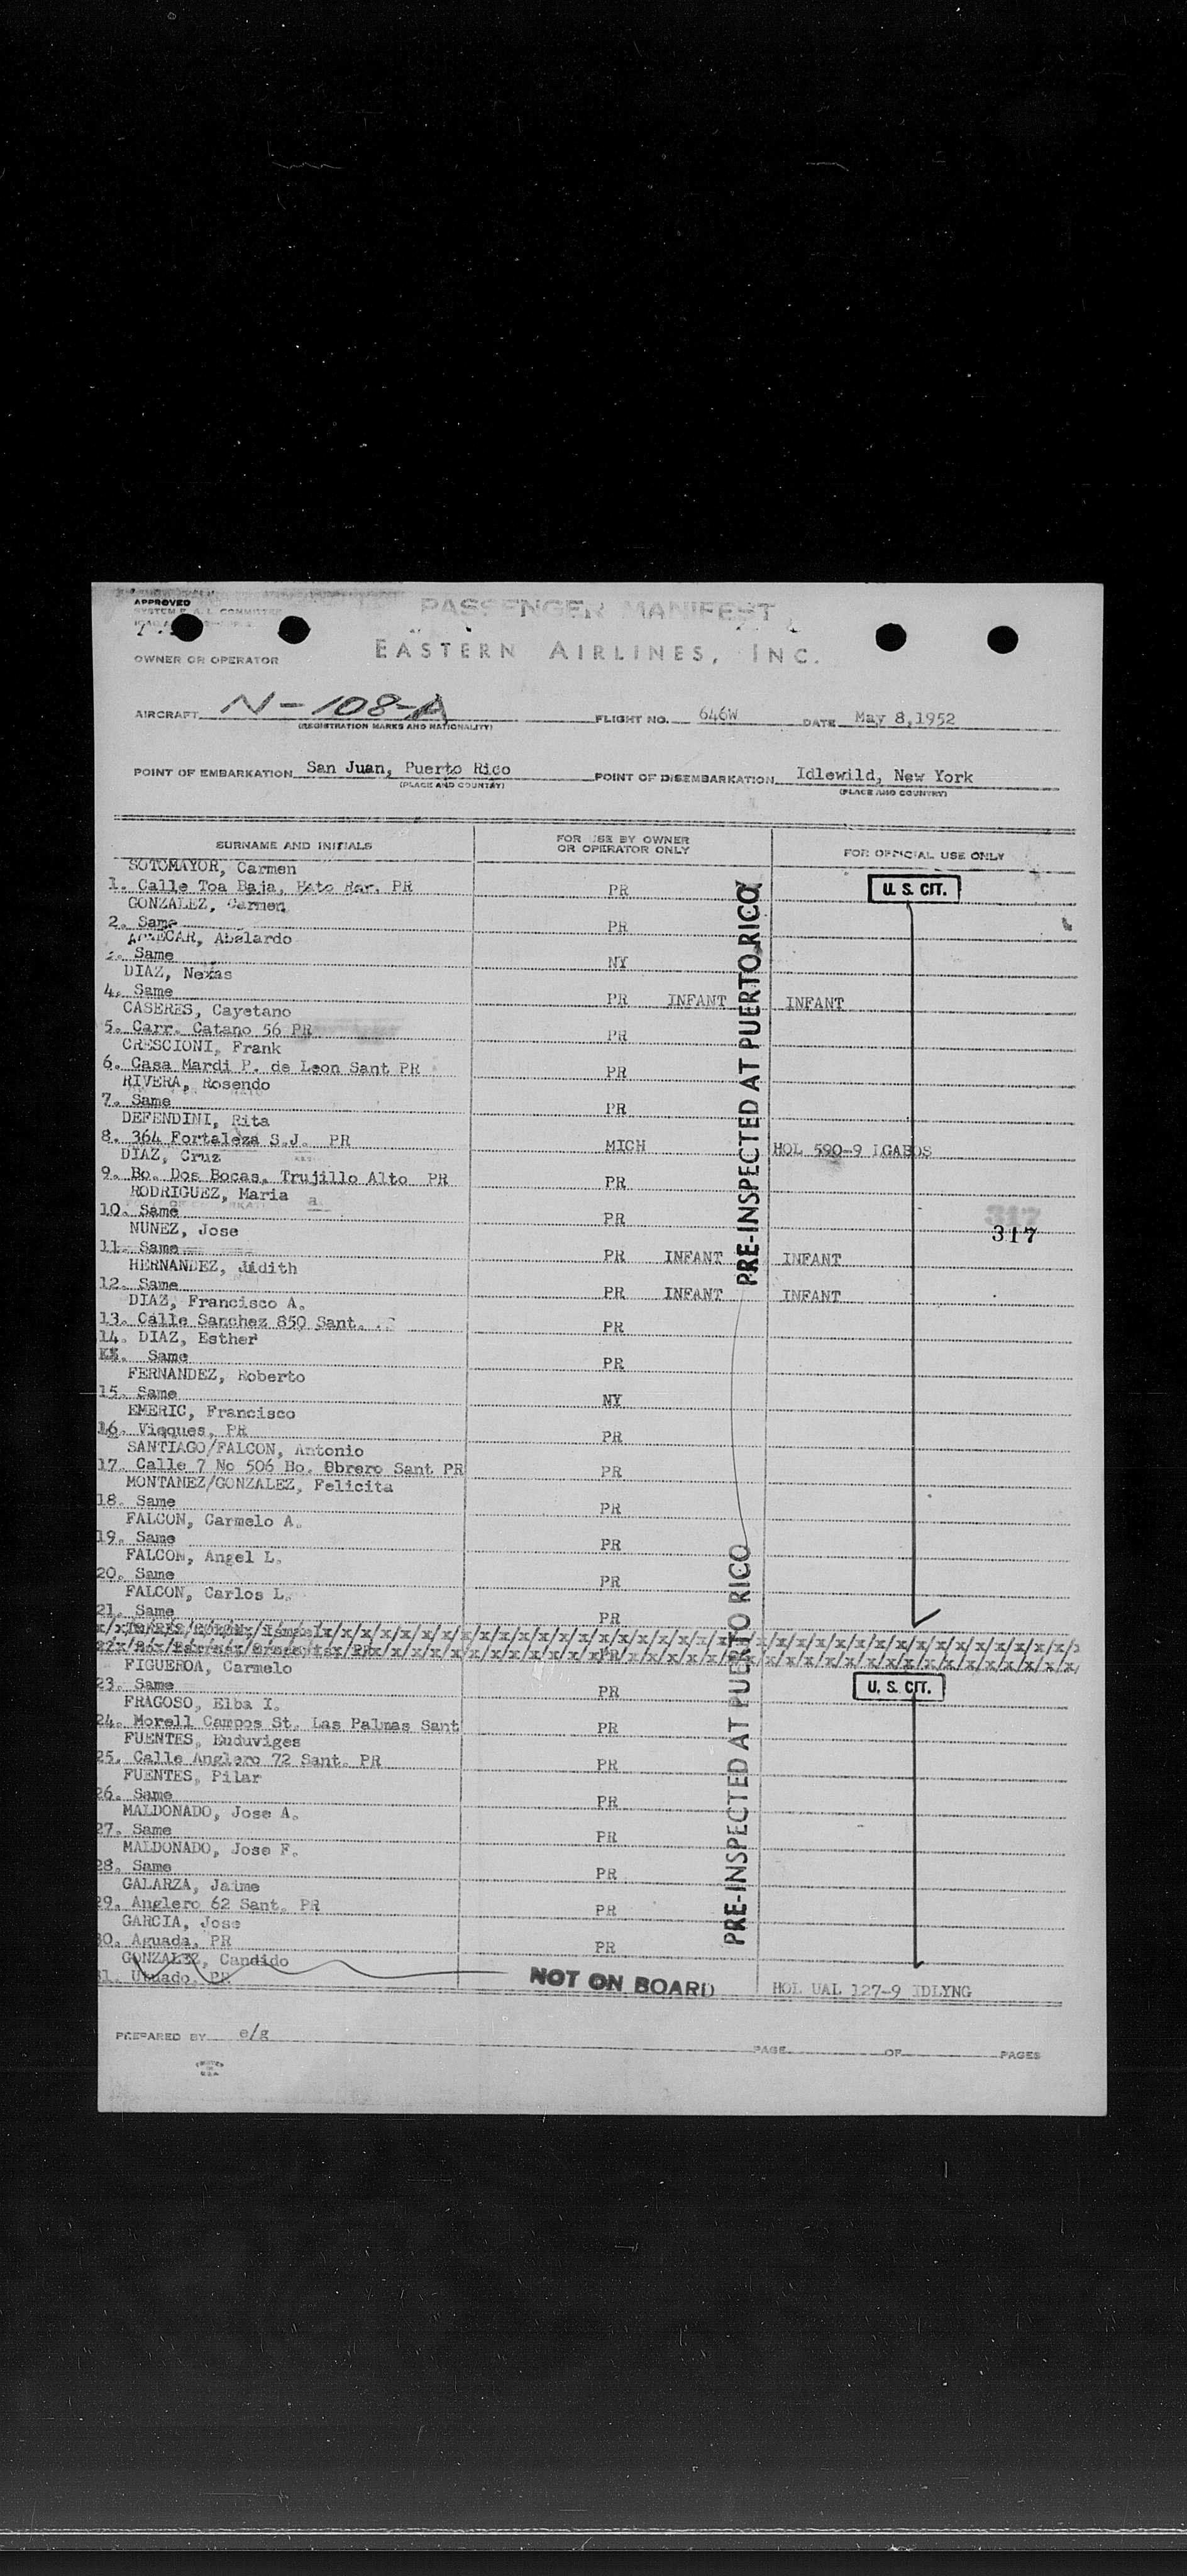 APPROVED
PASSENGER MANIFEST
EASTERN AIRLINES, INC.
OWNER OR OPERATOR
AIRCRAFT N-108-A FLIGHT NO. 646W DATE May 8,1952
(REGISTRATION MARKS AND NATIONALITY)
POINT OF EMBARKATION San Juan, Puerto Rico POINT OF DISEMBARKATION Idlewild, New York
(PLACE AND COUNTRY) (PLACE AND COUNTRY)
SURNAME AND INITIALS FOR USE BY OWNER OR OPERATOR ONLY FOR OFFICIAL USE ONLY
SOTOMAYOR, Carmen
1. Calle Toa Baja, Hato Rar. PR PR U. S. CIT.
GONZALEZ, Carmen
2. Same PR
Abelardo
Same NY
DIAZ, Nexas
4. Same PR INFANT INFANT
CASERES, Cayetano
5. Carr. Catano 56 PR PR
CRESCIONI, Frank
6. Casa Mardi P. de Leon Sant PR PR
RIVERA, Rosendo
7. Same PR
DEFENDINI, Rita
8. 364 Fortaleza S.J. PR MICH HOL 590-9 LGAEDS
DIAZ, Cruz
9. Bo. Dos Bocas, Trujillo Alto PR PR
RODRIGUEZ, Maria a
10. Same PR
317
317
NUNEZ, Jose
11. Same PR INFANT INFANT
HERNANDEZ, Judith
12. Same PR INFANT INFANT
DIAZ, Francisco A.
13. Calle Sanchez 850 Sant. PR
14. DIAZ, Esther
Same PR
FERNANDEZ, Roberto
15. Same NY
EMERIC, Francisco
16. Vieques, PR PR
SANTIAGO/FALCON, Antonio
17. Calle 7 No 506 Bo. Obrero Sant PR PR
MONTANEZ/GONZALEZ, Felicita
18. Same PR
FALCON, Carmelo A.
19. Same PR
FALCON, Angel L.
20. Same PR
FALCON, Carlos L.
21. Same PR
PR
FIGUEROA, Carmelo
23. Same PR U. S. CIT.
FRAGOSO, Elba I.
24. Morell Campos St. Las Palmas Sant PR
FUENTES, Euduviges
25. Calle Anglero 72 Sant. PR PR
FUENTES, Pilar
26. Same PR
MALDONADO, Jose A.
27. Same PR
MALDONADO, Jose F.
28. Same PR
GALARZA, Jaime
29. Anglero 62 Sant. PR PR
GARCIA, Jose
30. Aguada, PR PR
GONZALEZ, Candido
31. Utuado, PR NOT ON BOARD HOL UAL 127-9 IDLYNG
PRE-INSPECTED AT PUERTO RICO
PRE-INSPECTED AT PUERTO RICO
PREPARED BY e/g
PAGE OF PAGES
PRINTED IN U.S.A.